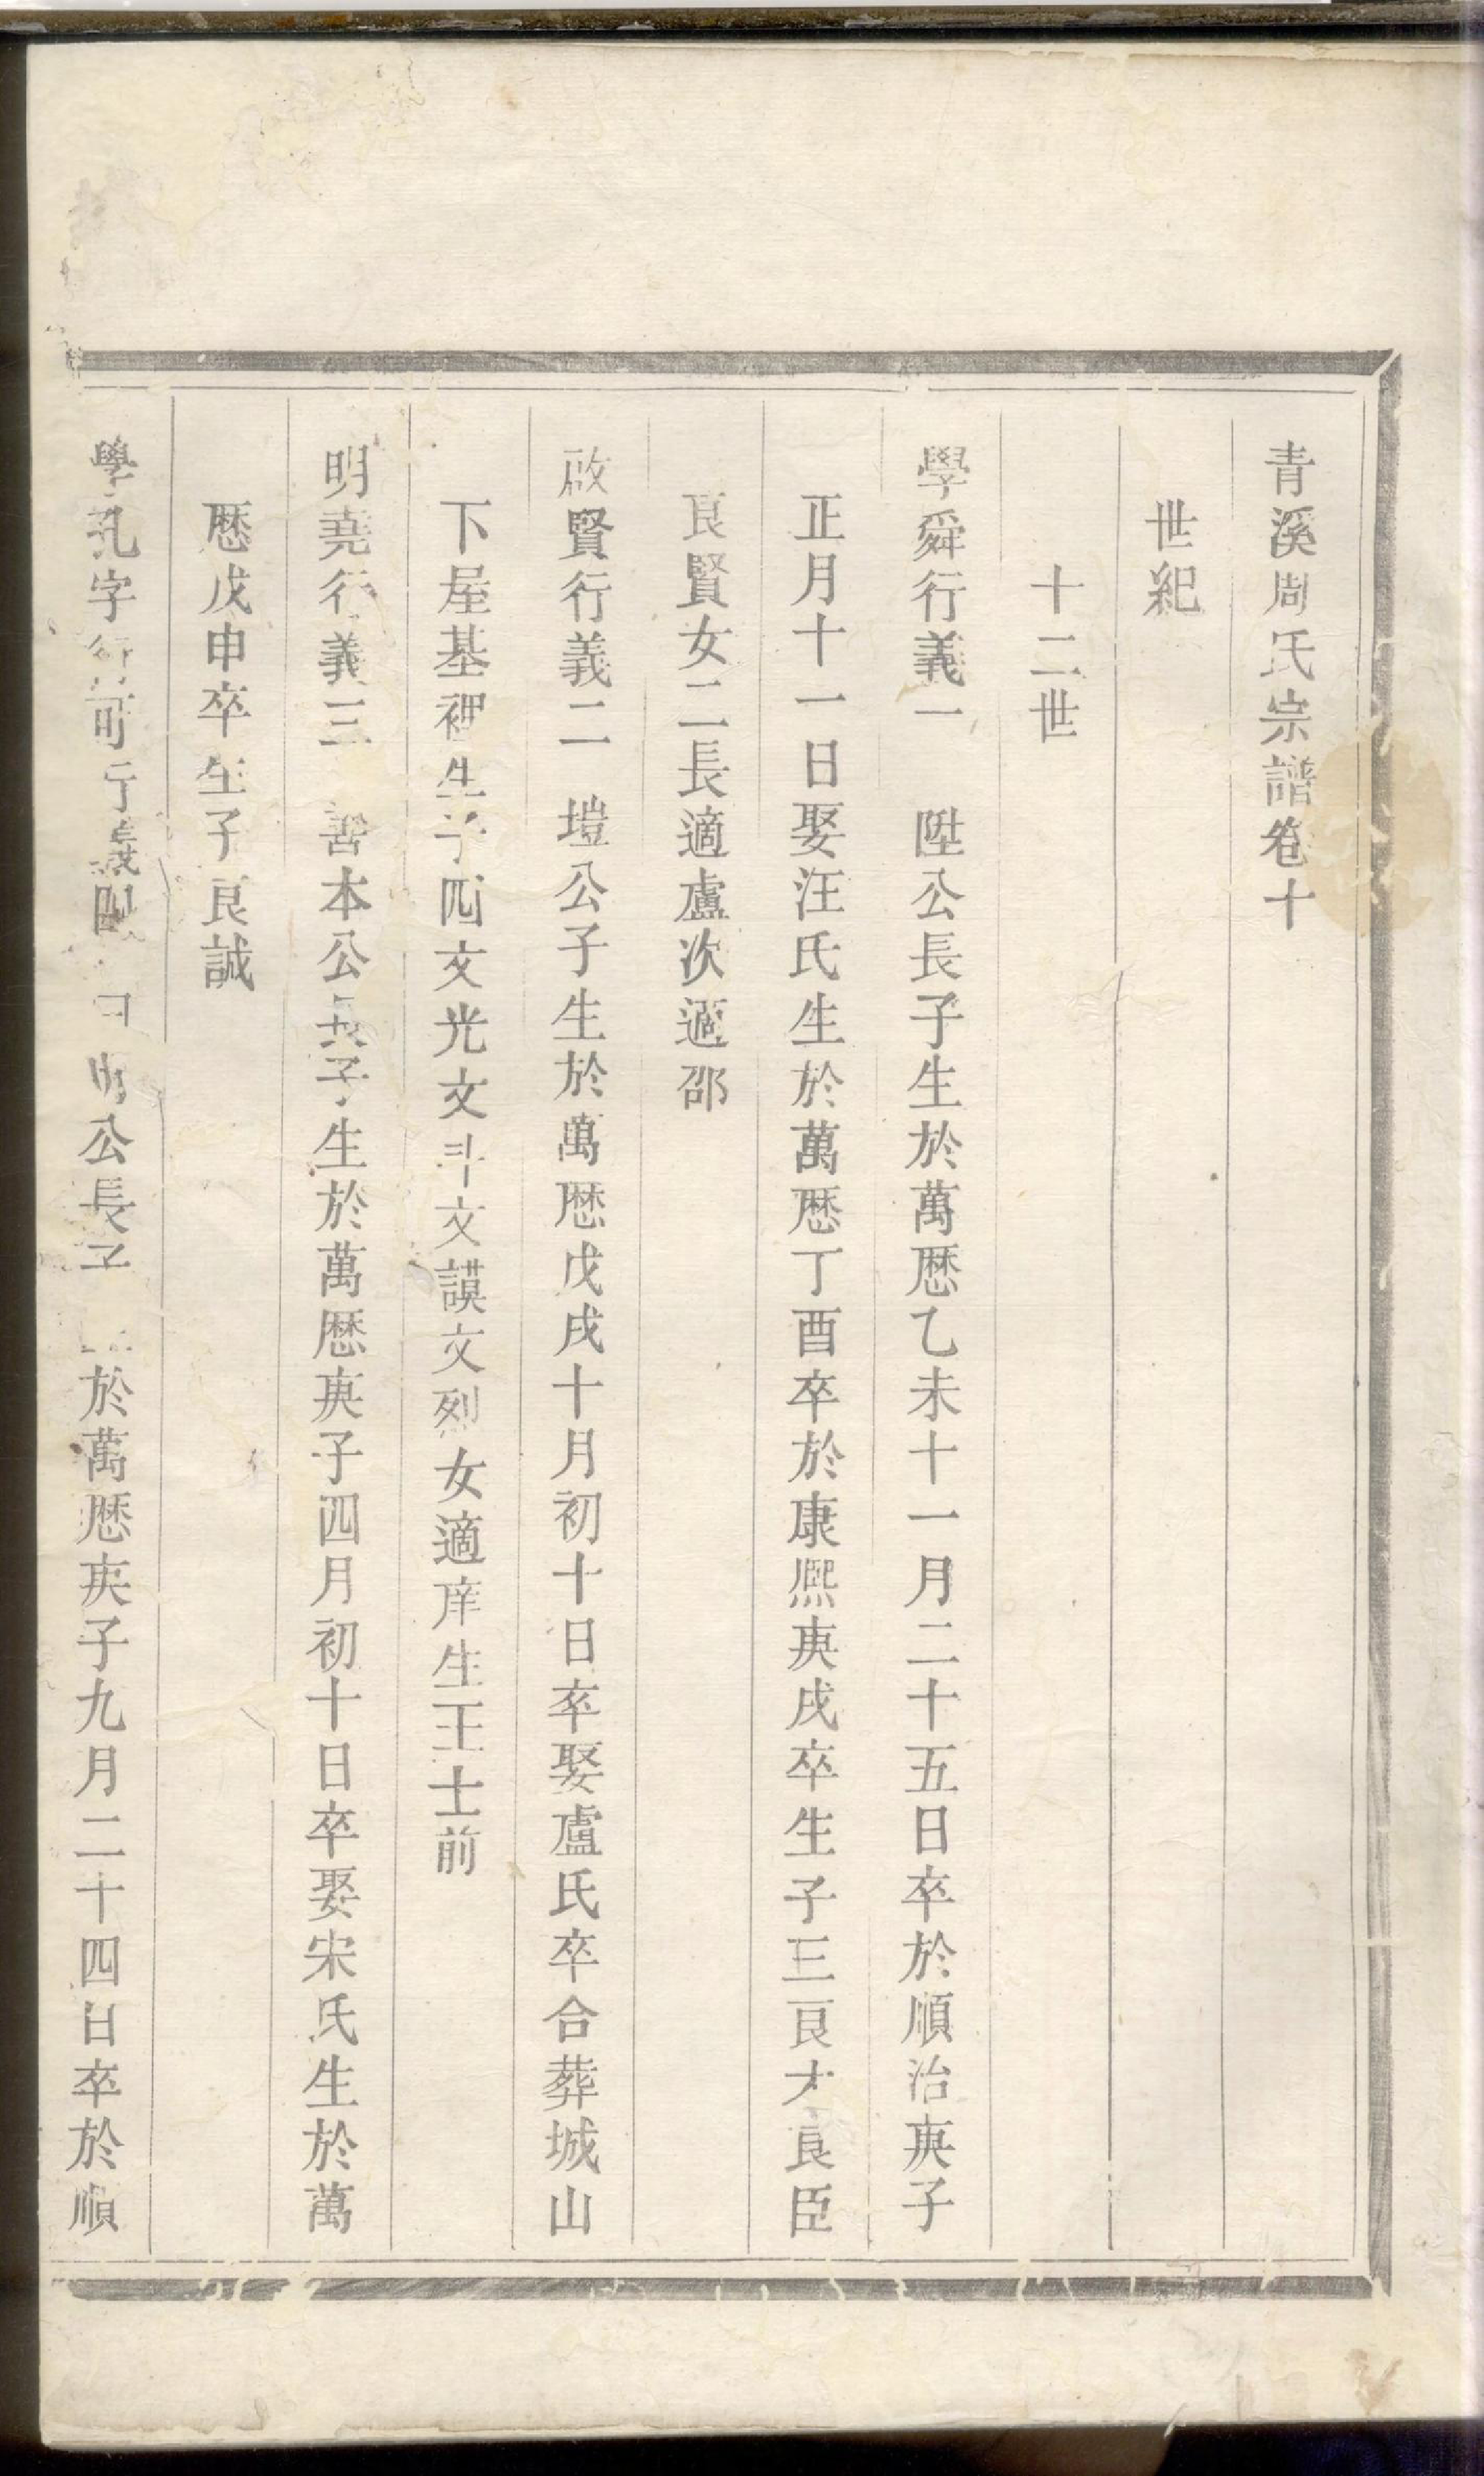 青溪周氏宗譜卷十
世紀
十二世
學舜行義一 陞公長子生於萬厯乙未十一月二十五日卒於順治庚子
正月十一日娶汪氏生於萬厯丁酉卒於康熈庚戌卒生子三良才良臣
良賢女二長適盧次適邵
啟賢行義二 塏公子生於萬厯戊戌十月初十日卒娶盧氏卒合葬城山
下屋基裡生子四文光文斗文謨文烈女適庠生王士前
明堯行義三 善本公長子生於萬厯庚子四月初十日卒娶宋氏生於萬
厯戊申卒生子良誠
學孔字行可行義四 公長子 於萬厯庚子九月二十四日卒於順